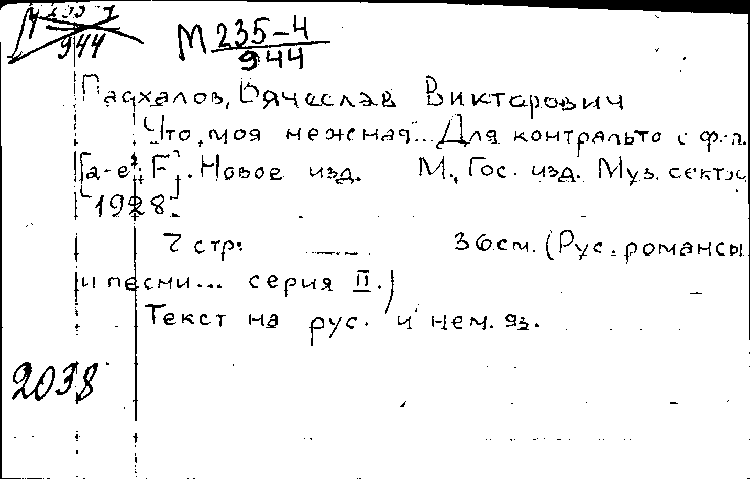 М 235-4
944
М 235-4
944
Пасхалов, Вячеслав Викторович
Что, моя нежная... Для контральто с ф.-п.
[a-e²; F]. Новое изд. М., Гос. изд. Муз. сектор
[1928].
7 стр. 36 см. (Рус. романсы
и песни... серия II.)
Текст на рус. и нем. яз.
2038